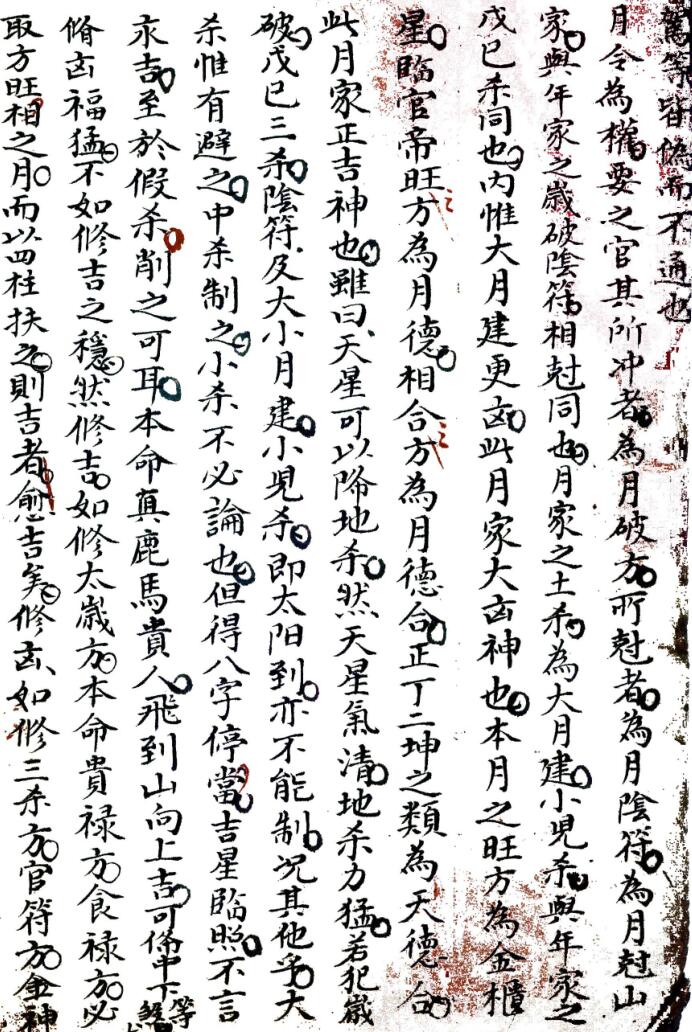 鸞等皆偽而不通也
月令為權要之官其所冲者為月破方所尅者為月陰符為月尅山
家與年家之歲破陰符相尅同也月家之土杀為大月建小児杀與年家之
戊已杀同也内惟大月建更㐫此月家大㐫神也本月之旺方為金櫃
星臨官帝旺方為月德相合方為月德合正丁二坤之類為天德合
此月家正吉神也雖曰天星可以降地杀然天星氣清地杀力猛若犯歲
破戊已三杀隂符及大小月建小児杀即太阳到亦不能制况其他乎大
杀惟有避之中杀制之小杀不必論也但得八字停當吉星臨照不言
永吉至於假杀削之可耳本命真鹿馬貴人飛到山向上吉可偹中下等
脩㐫福猛不如修吉之穩然修吉如修太歲方本命貴禄方食禄方必
取方旺相之月而以四柱扶之則吉者愈吉矣修㐫如修三杀方官符方金神